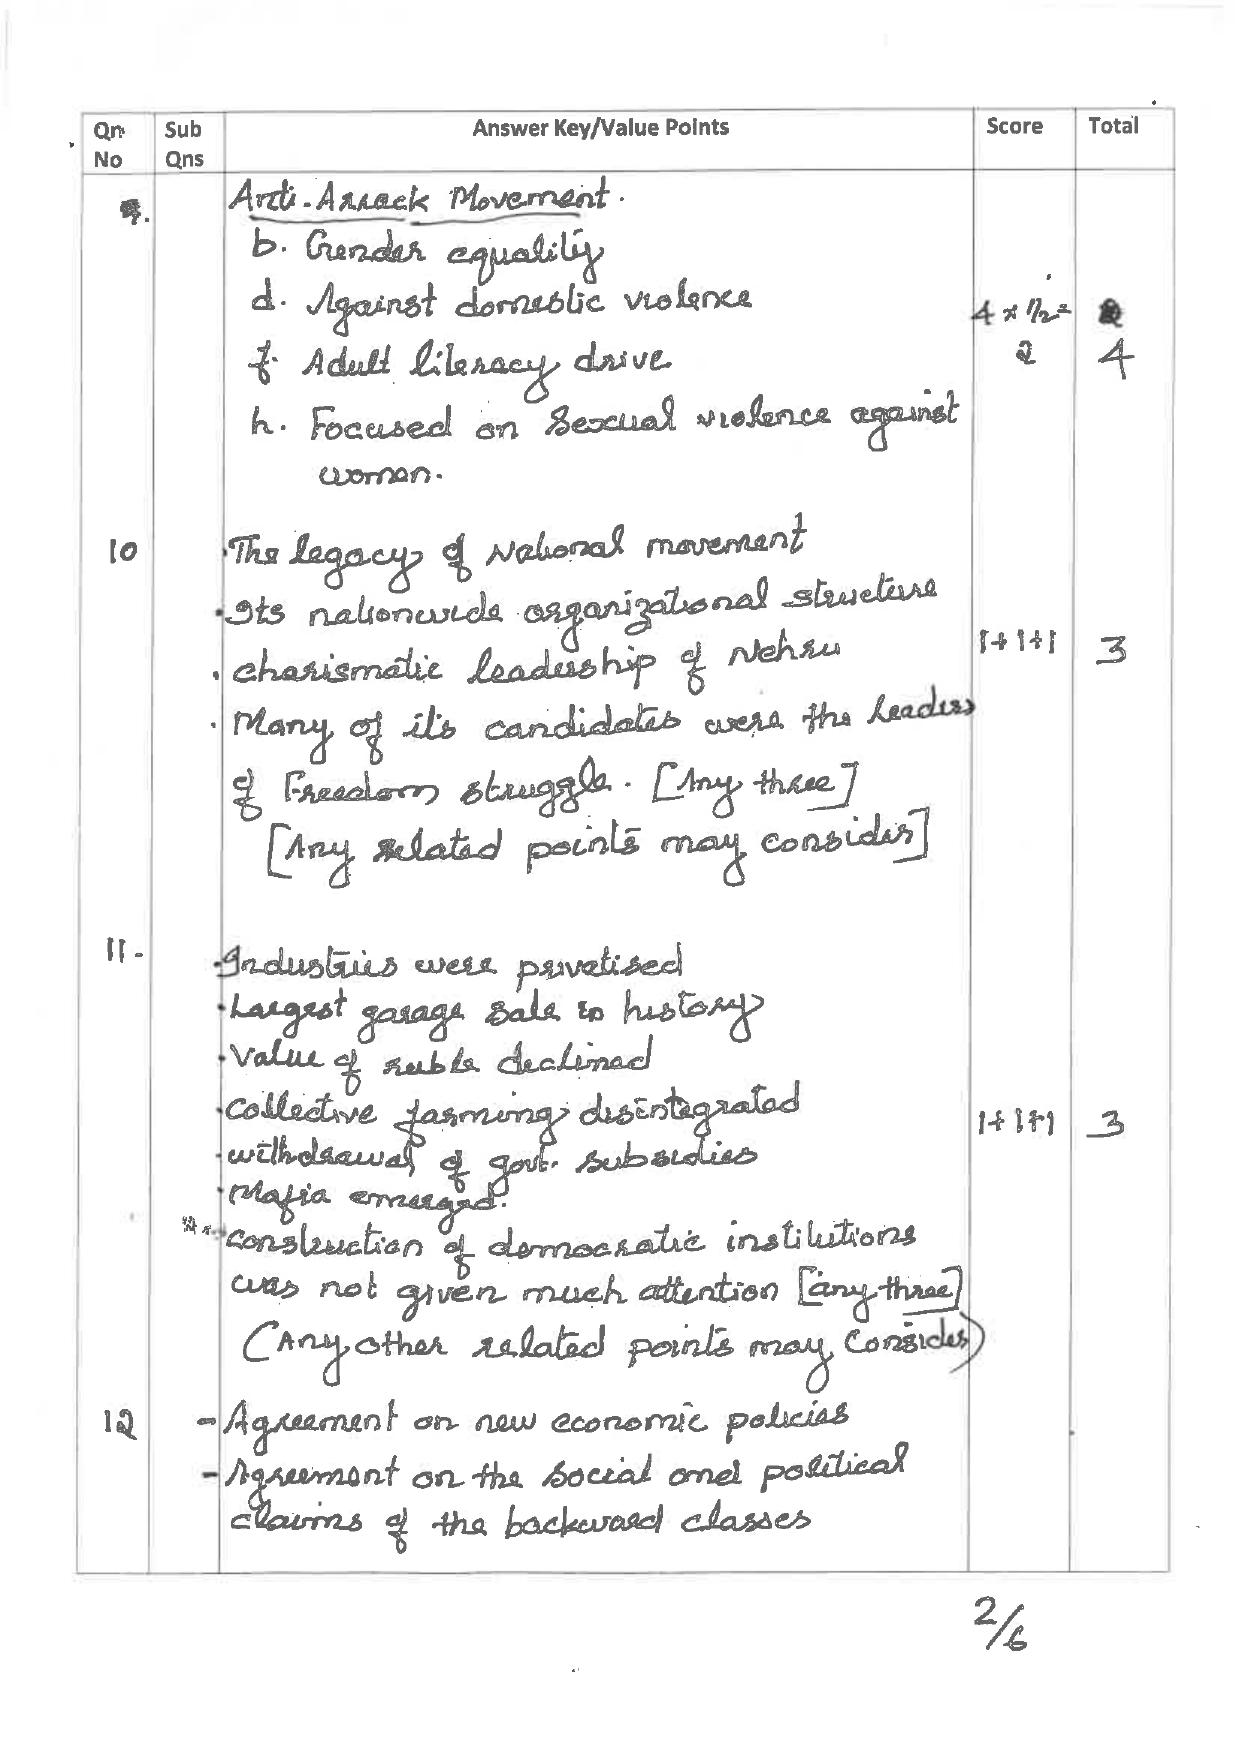 Qn No Sub Qns Answer Key/Value Points Score Total
9. Anti-Arrack Movement.
b. Gender equality
d. Against domestic violence 4 x 1/2 =
f. Adult literacy drive 2 4
h. Focused on Sexual violence against
women.
10 · The legacy of National movement
· Its nationwide organizational structure
· charismatic leadership of Nehru 1+1+1 3
· Many of it's candidates were the leaders
of Freedom struggle. [Any three]
[Any related points may consider]
11. · Industries were privatised
· Largest garage sale in history
· Value of ruble declined
· Collective farming disintegrated 1+1+1 3
· withdrawal of govt. subsidies
· Mafia emerged.
· construction of democratic institutions
was not given much attention [any three]
(Any other related points may consider)
12 - Agreement on new economic policies
- Agreement on the social and political
claims of the backward classes
2/6